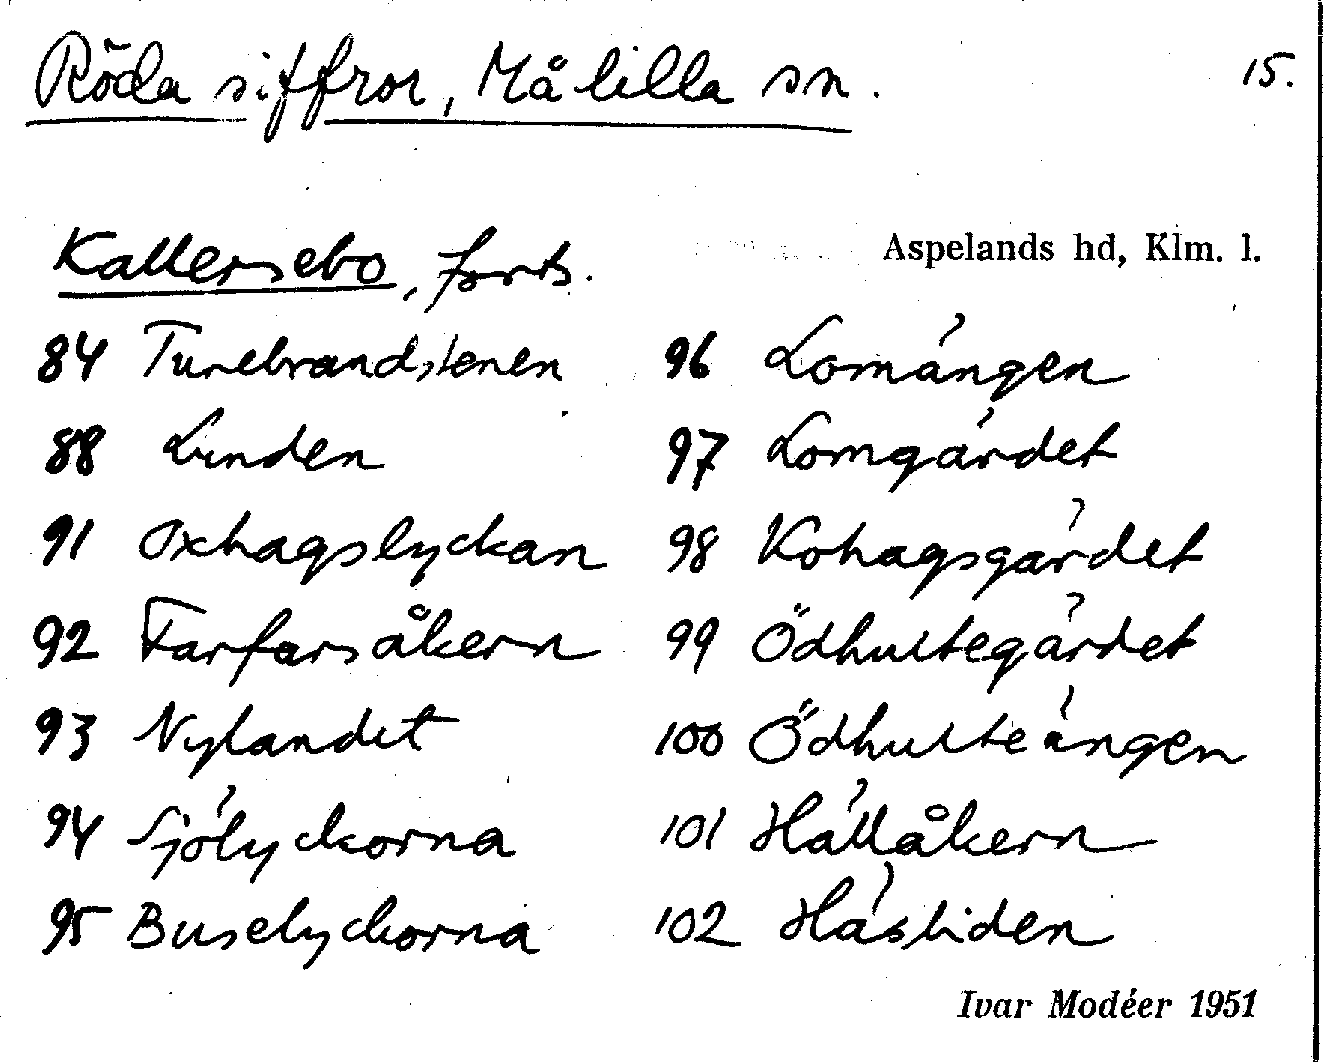 Röda siffror, Målilla sn.
15.
Kallersebo, forts.
Aspelands hd, Klm. l.
84 Turebrandstenen
88 Linden
91 Oxhagslyckan
92 Farfarsåkern
93 Nylandet
94 Sjölyckorna
95 Buselyckorna
96 Lomängen
97 Lomgärdet
98 Kohagsgärdet
99 Ödhultegärdet
100 Ödhulteängen
101 Hällákern
102 Hästiden
Ivar Modéer 1951